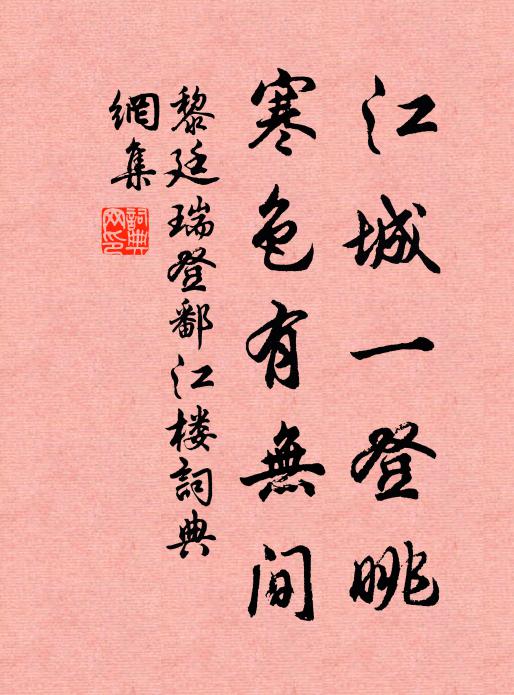 江城一登眺
寒色有無间
黎廷瑞登鄱江楼詞典
網集
詞典
网印